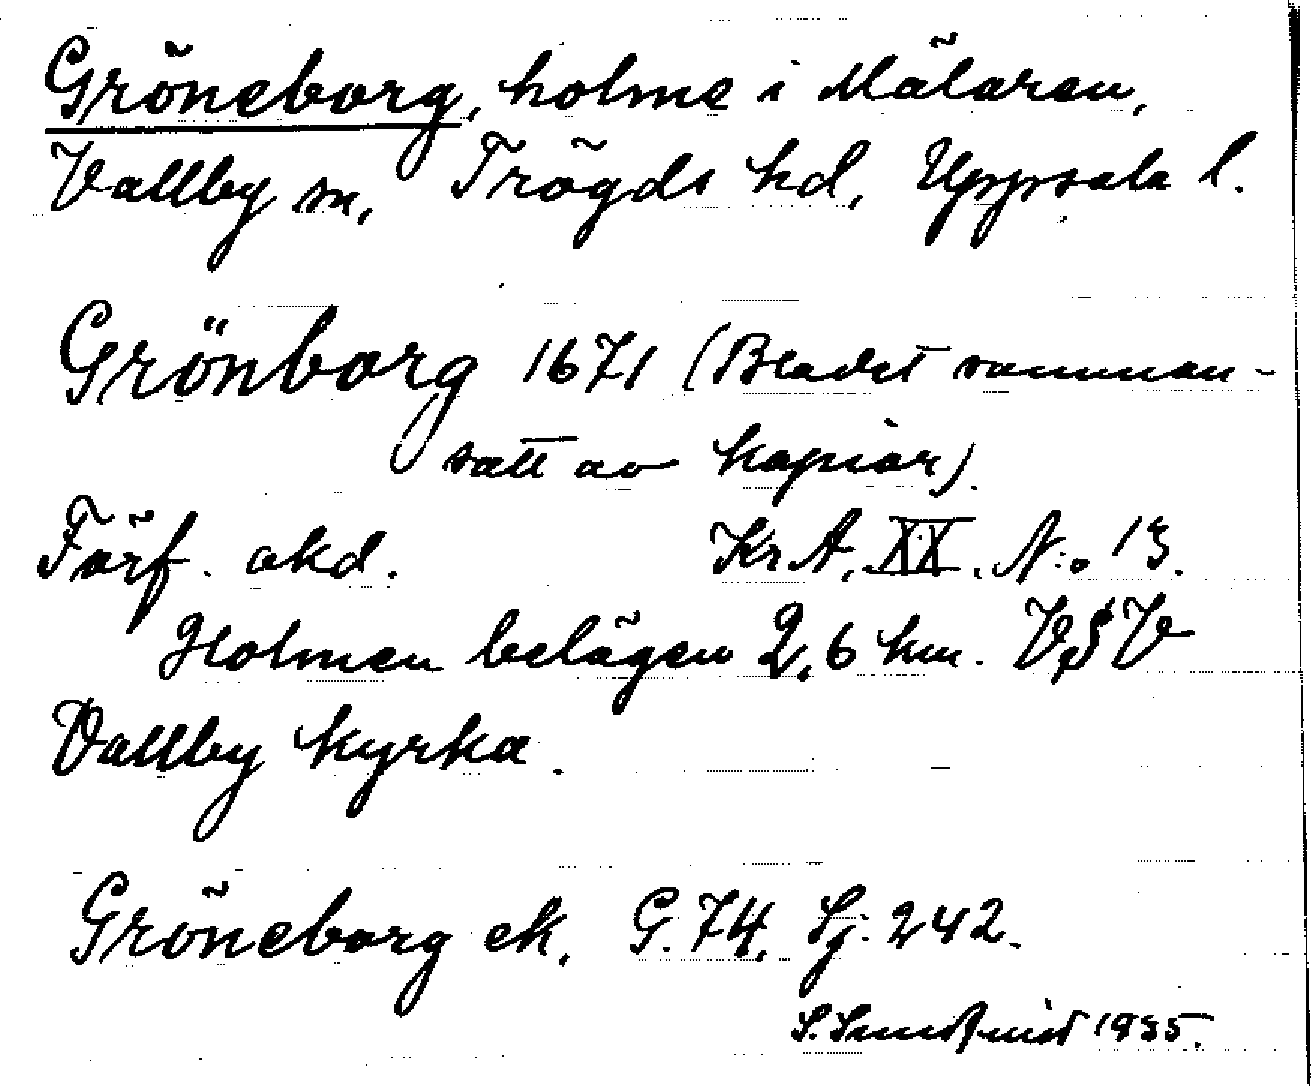 Gröneborg, holme i Mälaren,
Vallby sn, Trögds hd, Uppsala l.
Grönborg 1671 (Bladet samman-
satt av kopior).
Förf. okd. Kr A. XX. N:o 13.
Holmen belägen 2,6 km. VSV
Vallby kyrka.
Gröneborg ek. G. 74. Sj. 242.
S. Sundquist 1935.